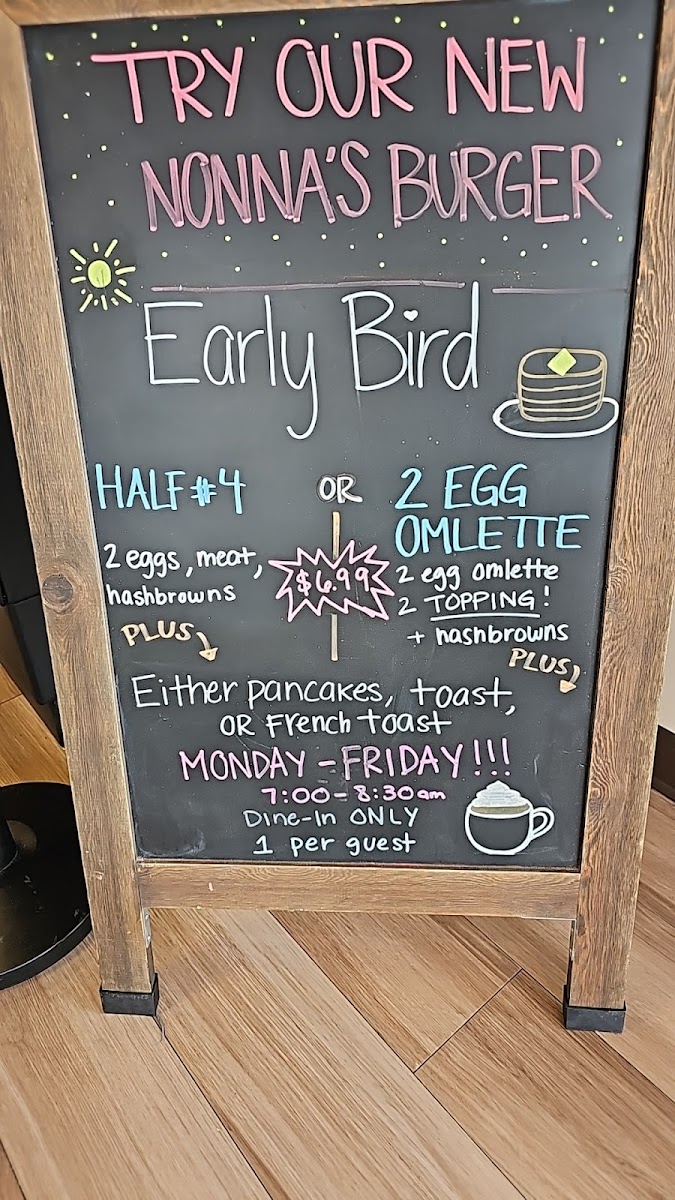 TRY OUR NEW
NONNA'S BURGER
Early Bird
HALF #4
2 eggs, meat,
hashbrowns
PLUS
OR
$6.99
2 EGG
OMLETTE
2 egg omlette
2 TOPPING!
+ hashbrowns
PLUS
Either pancakes, toast,
OR French toast
MONDAY - FRIDAY!!!
7:00 - 8:30am
Dine-In ONLY
1 per guest